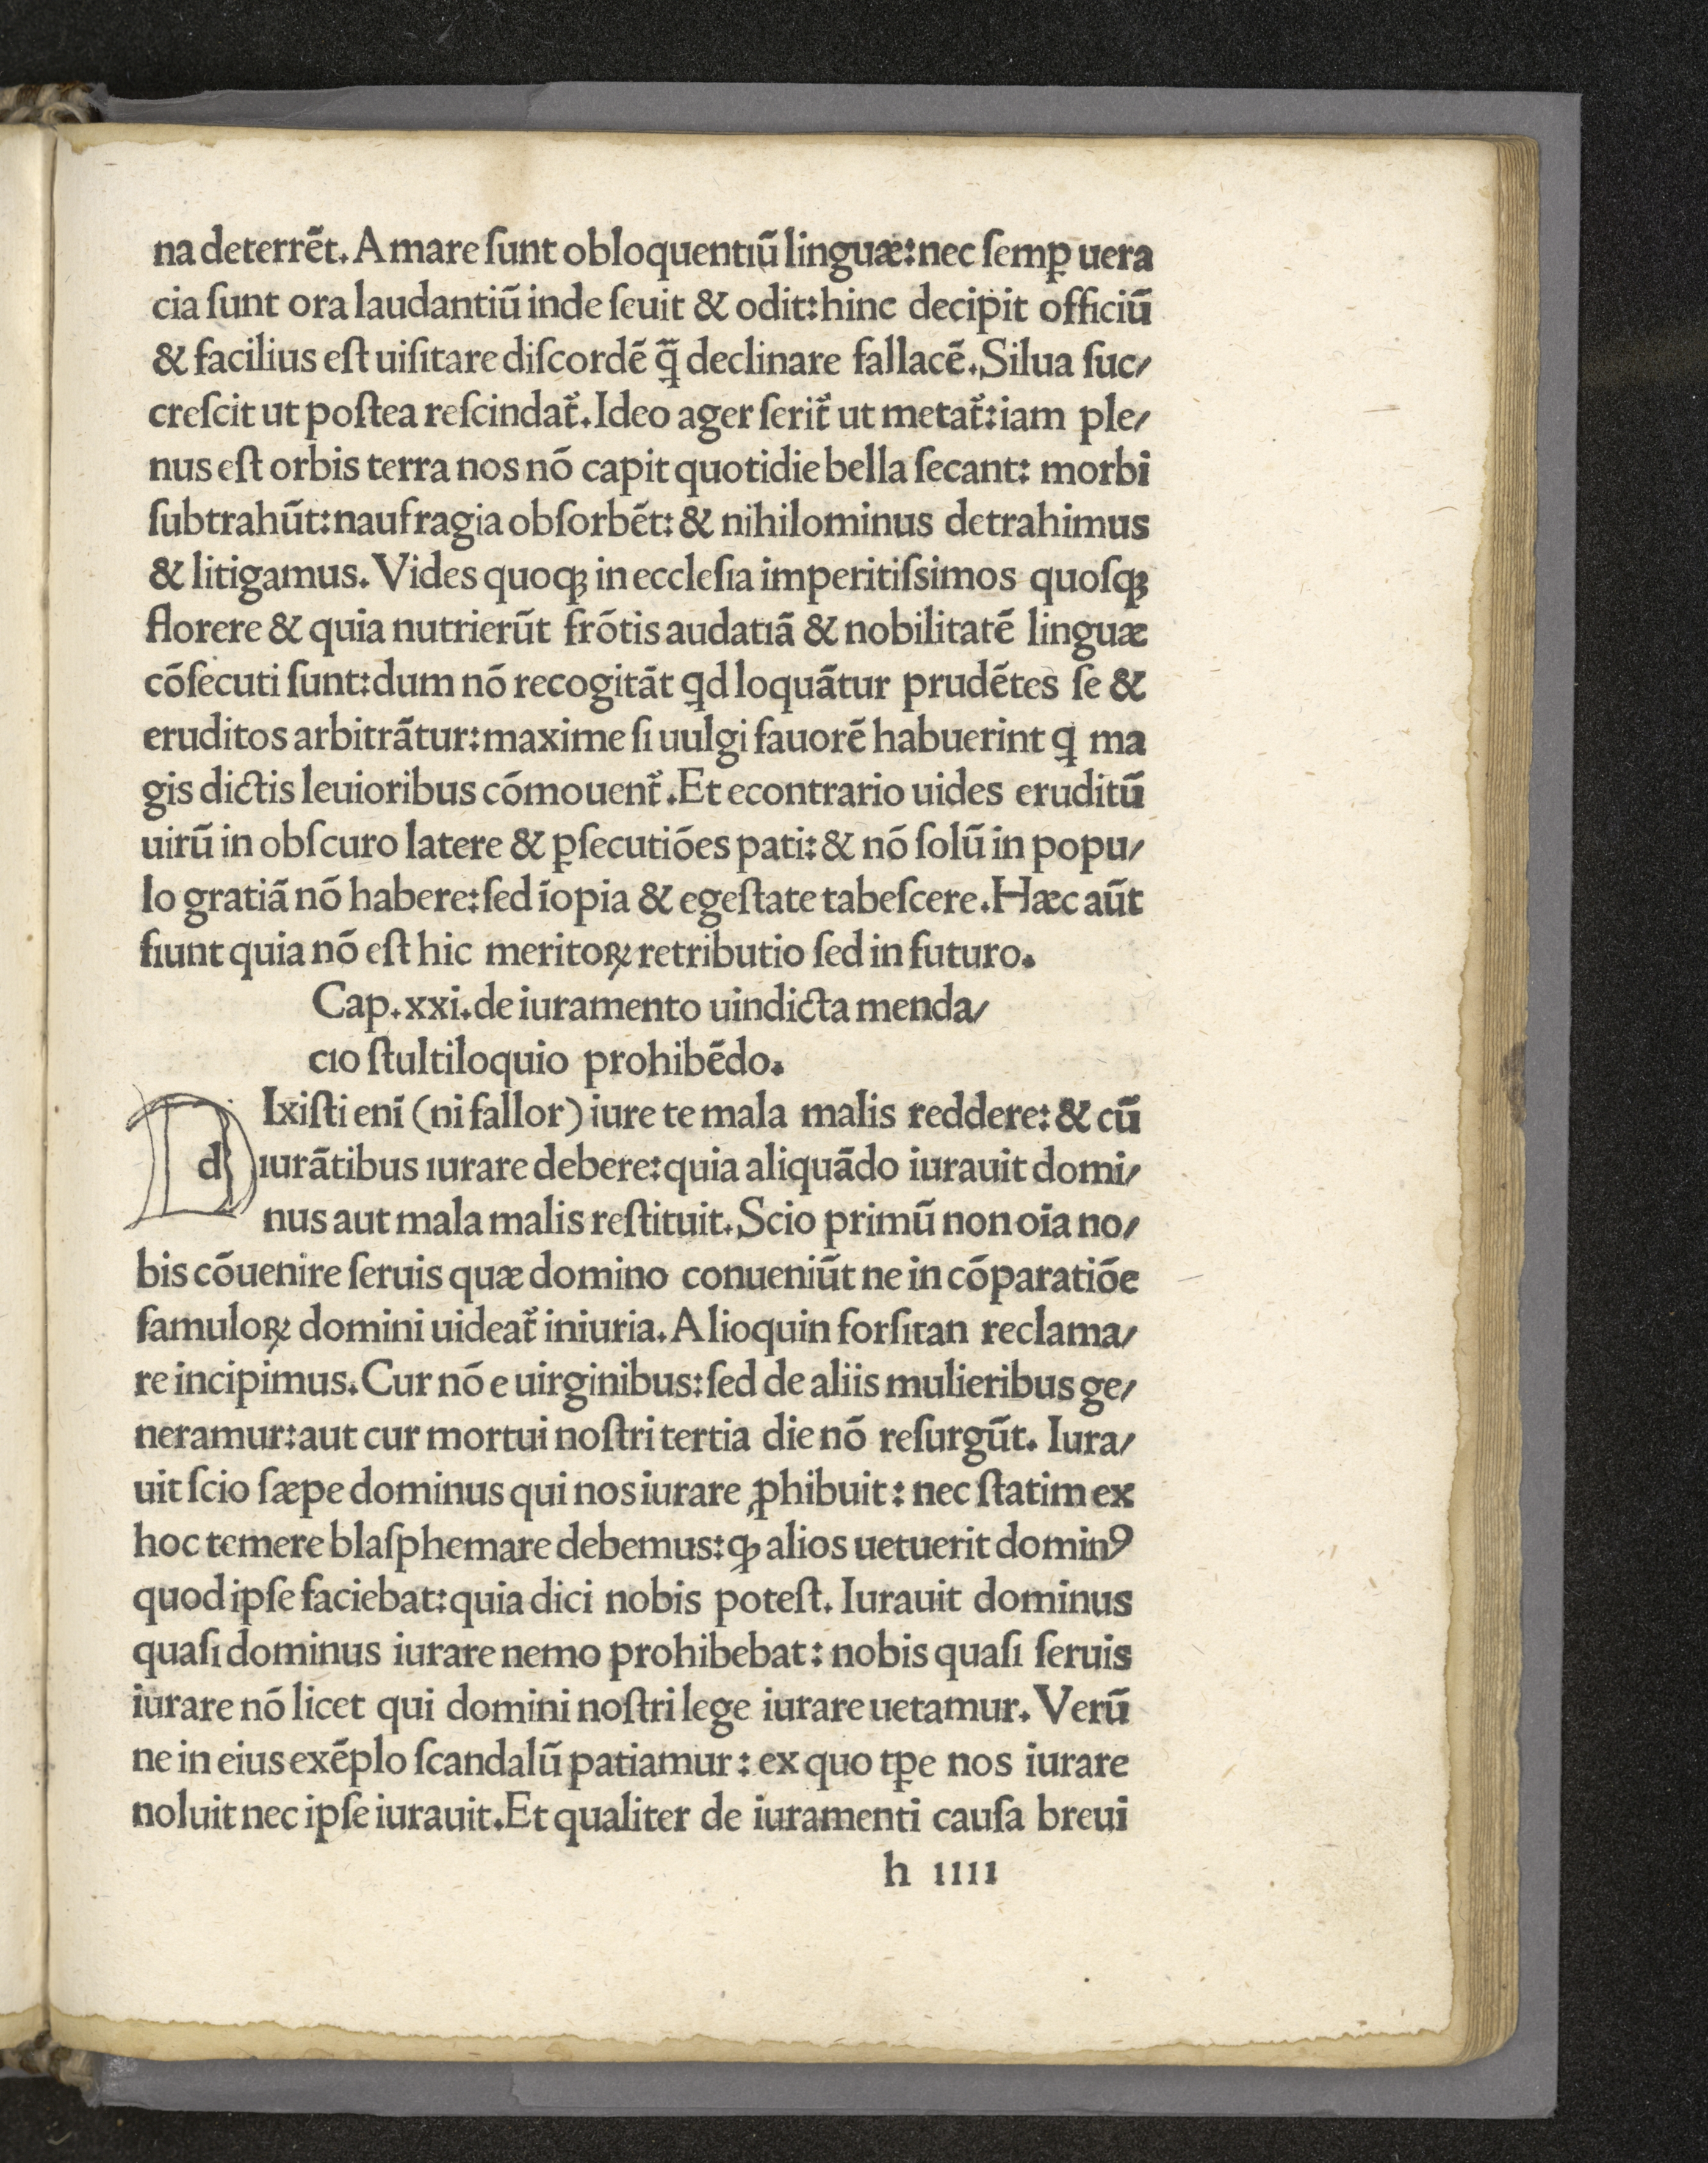 na deterrēt. Amare ſunt obloquentiū linguæ: nec ſemꝑ uera
cia ſunt ora laudantiū inde ſeuit & odit: hinc decipit officiū
& facilius eſt uiſitare diſcordē ꝗ̄ declinare fallacē. Silua ſuc/
creſcit ut poſtea reſcindat᷑. Ideo ager ſerit᷑ ut metat᷑: iam ple/
nus eſt orbis terra nos nō capit quotidie bella ſecant: morbi
ſubtrahūt: naufragia obſorbēt: & nihilominus detrahimus
& litigamus. Vides quoqꝫ in eccleſia imperitiſsimos quoſqꝫ
florere & quia nutrierūt frōtis audatiā & nobilitatē linguæ
cōſecuti ſunt: dum nō recogitāt ꝗd loquātur prudētes ſe &
eruditos arbitrātur: maxime ſi uulgi fauorē habuerint ꝗ ma
gis dictis leuioribus cōmouent᷑. Et econtrario uides eruditū
uirū in obſcuro latere & ꝑſecutiōes pati: & nō ſolū in popu/
lo gratiā nō habere: ſed īopia & egeſtate tabeſcere. Hæc aūt
fiunt quia nō eſt hic meritoꝝ retributio ſed in futuro.
Cap. xxi. de iuramento uindicta menda/
cio ſtultiloquio prohibēdo.
d Ixiſti enī (ni fallor) iure te mala malis reddere: & cū
iurātibus iurare debere: quia aliquādo iurauit domi/
nus aut mala malis reſtituit. Scio primū non oīa no/
bis cōuenire ſeruis quæ domino conueniūt ne in cōparatiōe
famuloꝝ domini uideat᷑ iniuria. Alioquin forſitan reclama/
re incipimus. Cur nō e uirginibus: ſed de aliis mulieribus ge/
neramur: aut cur mortui noſtri tertia die nō reſurgūt. Iura/
uit ſcio ſæpe dominus qui nos iurare ꝓhibuit: nec ſtatim ex
hoc temere blaſphemare debemus: ꝙ alios uetuerit dominꝰ
quod ipſe faciebat: quia dici nobis poteſt. Iurauit dominus
quaſi dominus iurare nemo prohibebat: nobis quaſi ſeruis
iurare nō licet qui domini noſtri lege iurare uetamur. Verū
ne in eius exēplo ſcandalū patiamur: ex quo tꝑe nos iurare
noluit nec ipſe iurauit. Et qualiter de iuramenti cauſa breui
h iiii